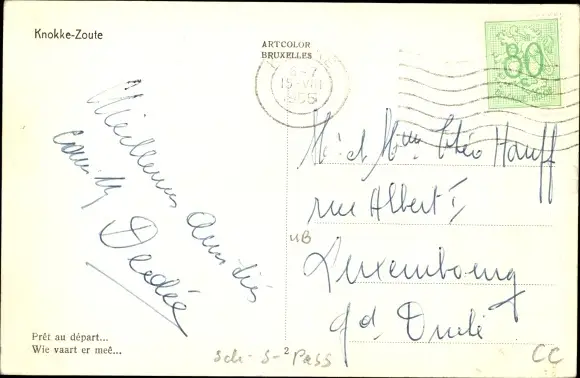 Knokke-Zoute
ARTCOLOR
BRUXELLES
6-7
15-VIII
80
Meilleures amitiés
Dedée
Mr et Mme Théo Hauff
rue Albert I
Luxembourg
gd. Duché
Prêt au départ...
Wie vaart er meê...
sch-s-2 Pass
CC